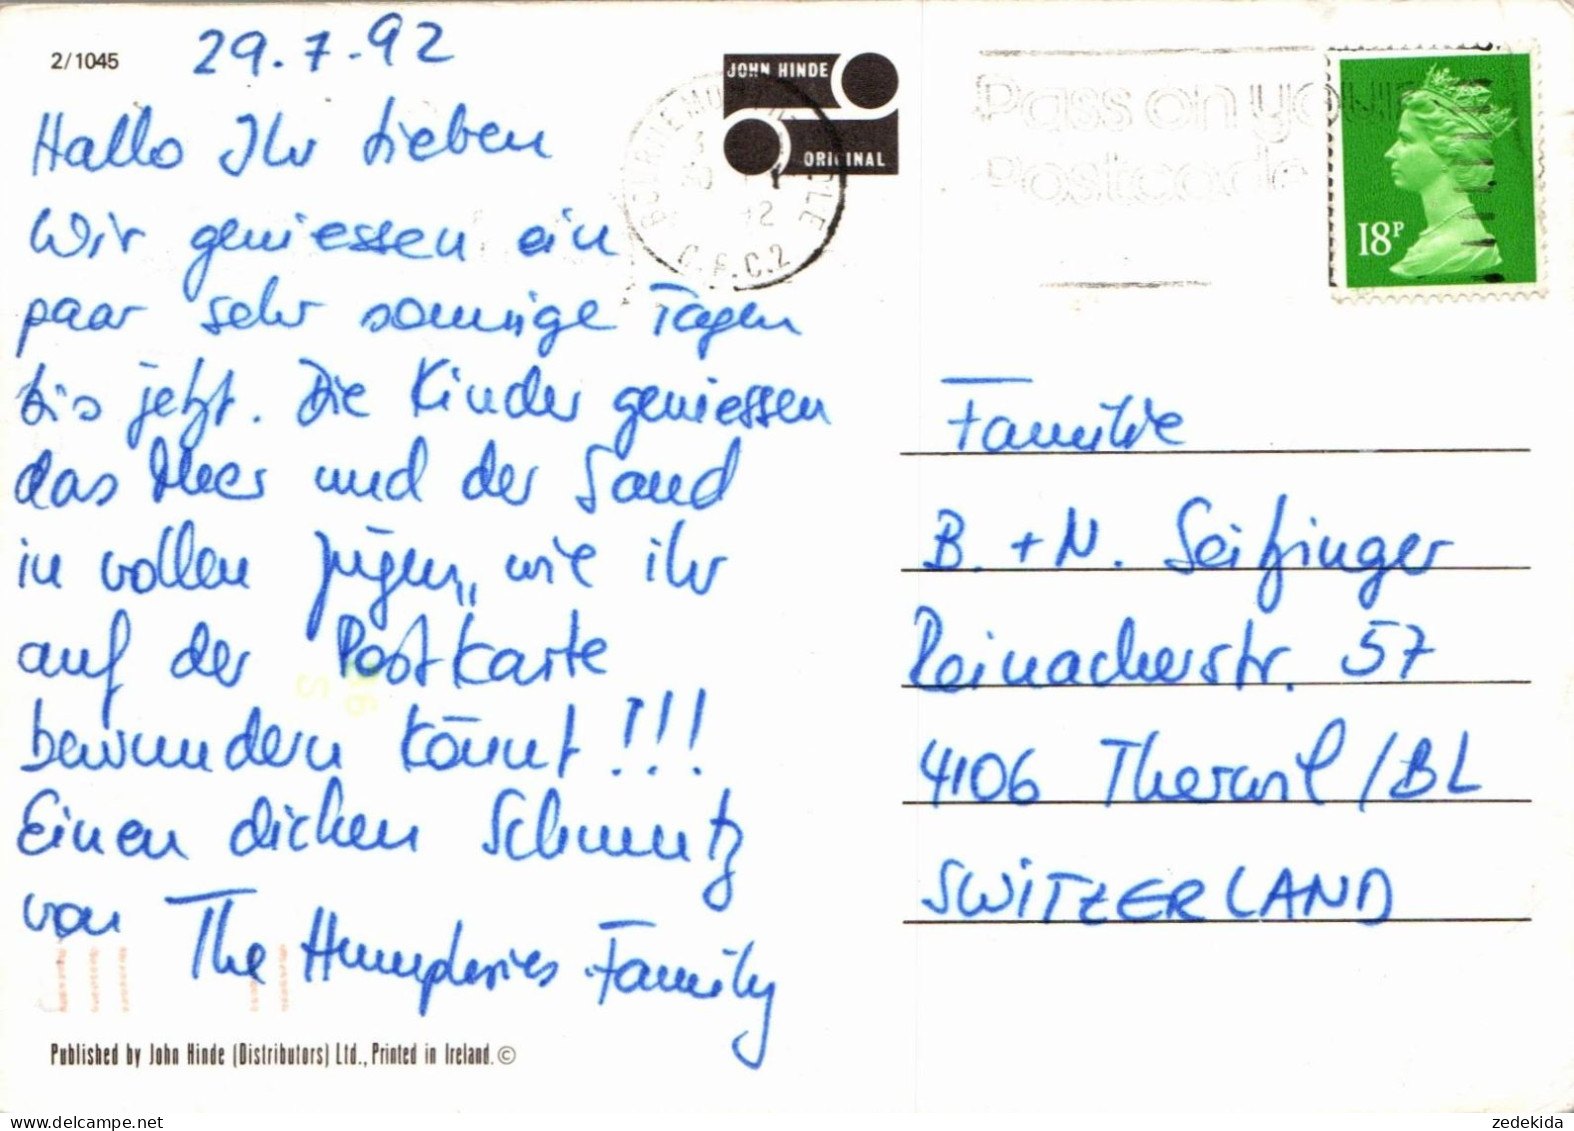 2/1045
29.7.92
Hallo Ihr Lieben
Wir geniessen ein
paar sehr sonnige Tagen
bis jetzt. Die Kinder geniessen
das Meer und der Sand
in vollen Zügen, wie ihr
auf der Postkarte
bewundern könnt!!!
Einen dicken Schmutz
von The Humphries Family
Published by John Hinde (Distributors) Ltd., Printed in Ireland. ©
JOHN HINDE
ORIGINAL
Pass on your
Postcode
18P
Familie
B. + N. Seitzinger
Reinacherstr. 57
4106 Therwil/BL
SWITZERLAND
zedekida